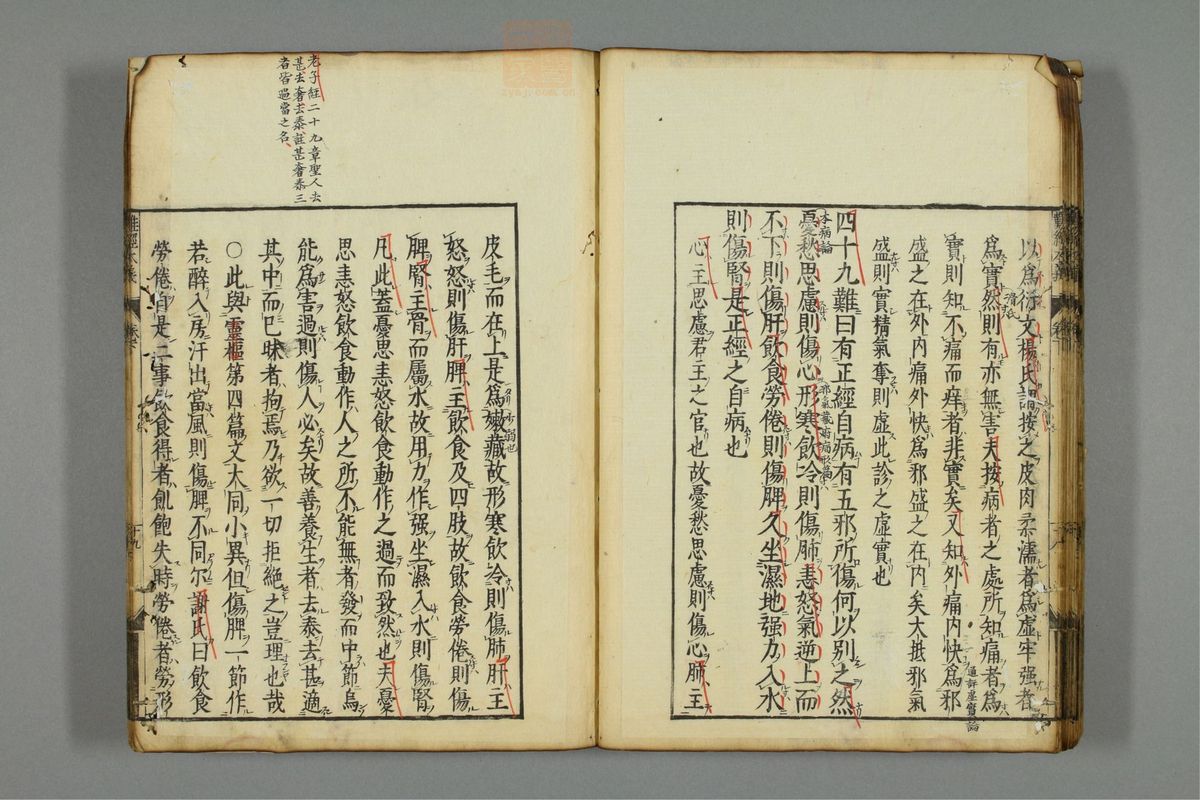 以爲衍文楊氏謂按之皮肉柔濡者爲虛牢强者
爲實然則有亦無害夫按病者之處所知痛者爲
滑氏
實則知不痛而痒者非實矣又知外痛内快爲邪
盛之在外内痛外快爲邪盛之在内矣大抵邪氣
盛則實精氣奪則虛此診之虛實也
四十九難曰有正經自病有五邪所傷何以別之然
憂愁思慮則傷心形寒飲冷則傷肺恚怒氣逆上而
不下則傷肝飲食勞倦則傷脾久坐濕地强力入水
則傷腎是正經之自病也
心主思慮君主之官也故憂愁思慮則傷心肺主
老子經二十九章聖人去
甚去奢去泰註甚奢泰三
者皆過當之名
皮毛而在上是爲嫰藏故形寒飲冷則傷肺肝主
怒怒則傷肝脾主飲食及四肢故飲食勞倦則傷
脾腎主骨而屬水故用力作强坐濕入水則傷腎
凡此蓋憂思恚怒飲食動作之過而致然也夫憂
思恚怒飲食動作人之所不能無者發而中節烏
能爲害過則傷人必矣故善養生者去泰去甚適
其中而已昧者拘焉乃欲一切拒絶之豈理也哉
〇此與靈樞第四篇文大同小異但傷脾一節作
若醉入房汗出當風則傷脾不同尔謝氏曰飲食
勞倦自是二事飲食得者飢飽失時勞倦者勞形